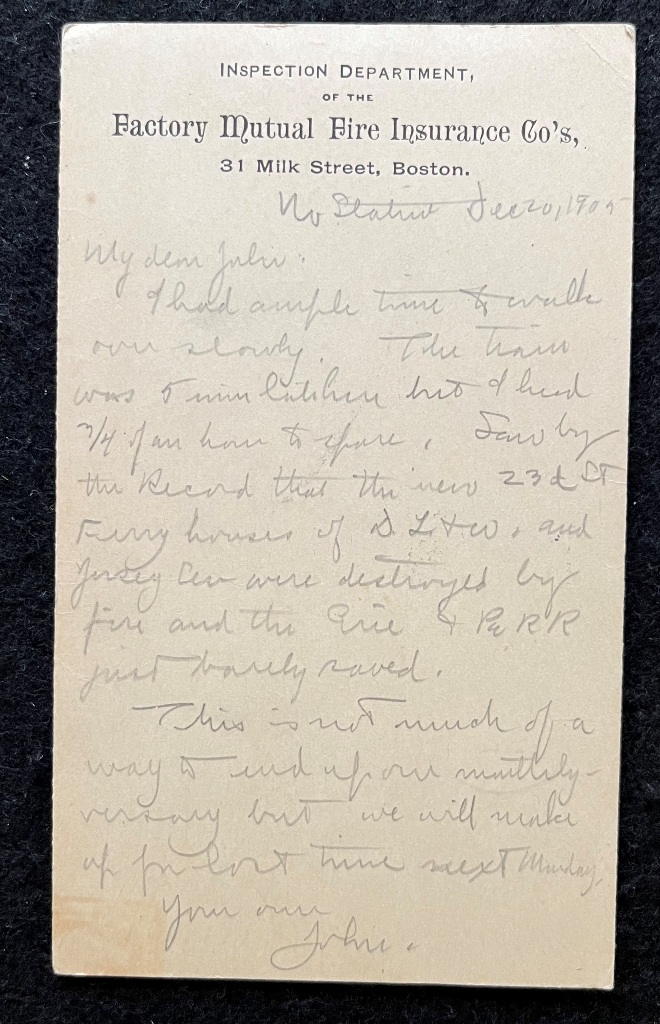 INSPECTION DEPARTMENT,
OF THE
Factory Mutual Fire Insurance Co's,
31 Milk Street, Boston.
No Station Dec 20, 1905
My dear
I had ample time to walk
over slowly. The train
was 5 min late here but I had
3/4 of an hour to spare. Saw by
the Record that the new 23d St
Ferry houses of D. L. + W. and
Jersey Cen were destroyed by
fire and the Erie & Pa RR
just barely saved.
This is not much of a
way to end up our monthly-
versary but we will make
up for lost time next Monday,
Your own
John.